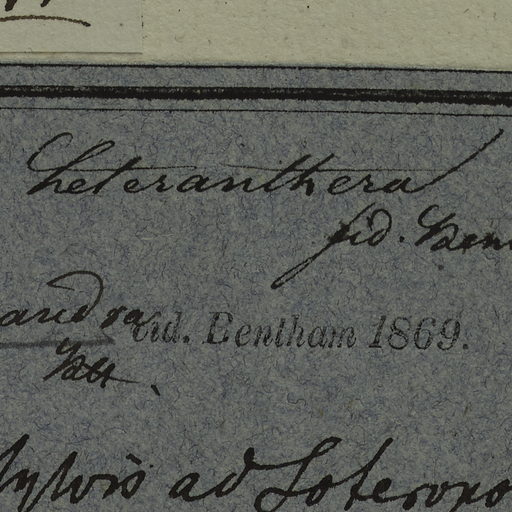 heteranthera
fid. Benth
andra vid. Bentham 1869.
Bth.
sylvis ad Soteropo